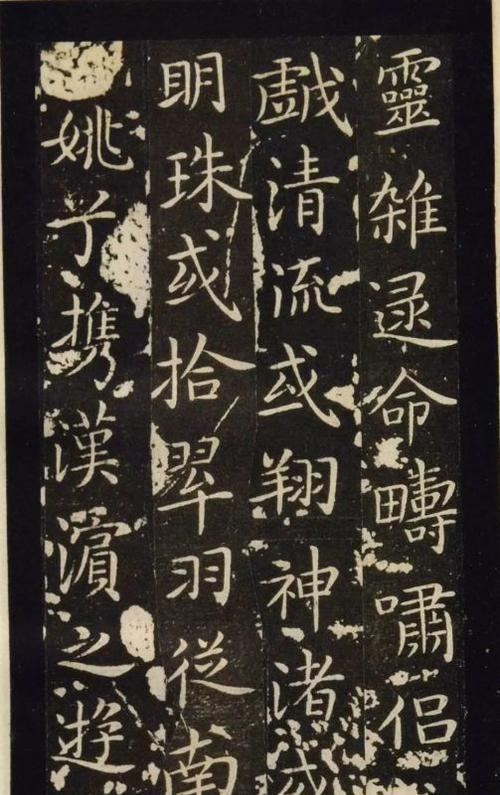 靈雜遝命疇嘯侶
戯清流或翔神渚或
明珠或拾翠羽從南
姚兮携漢濱之遊